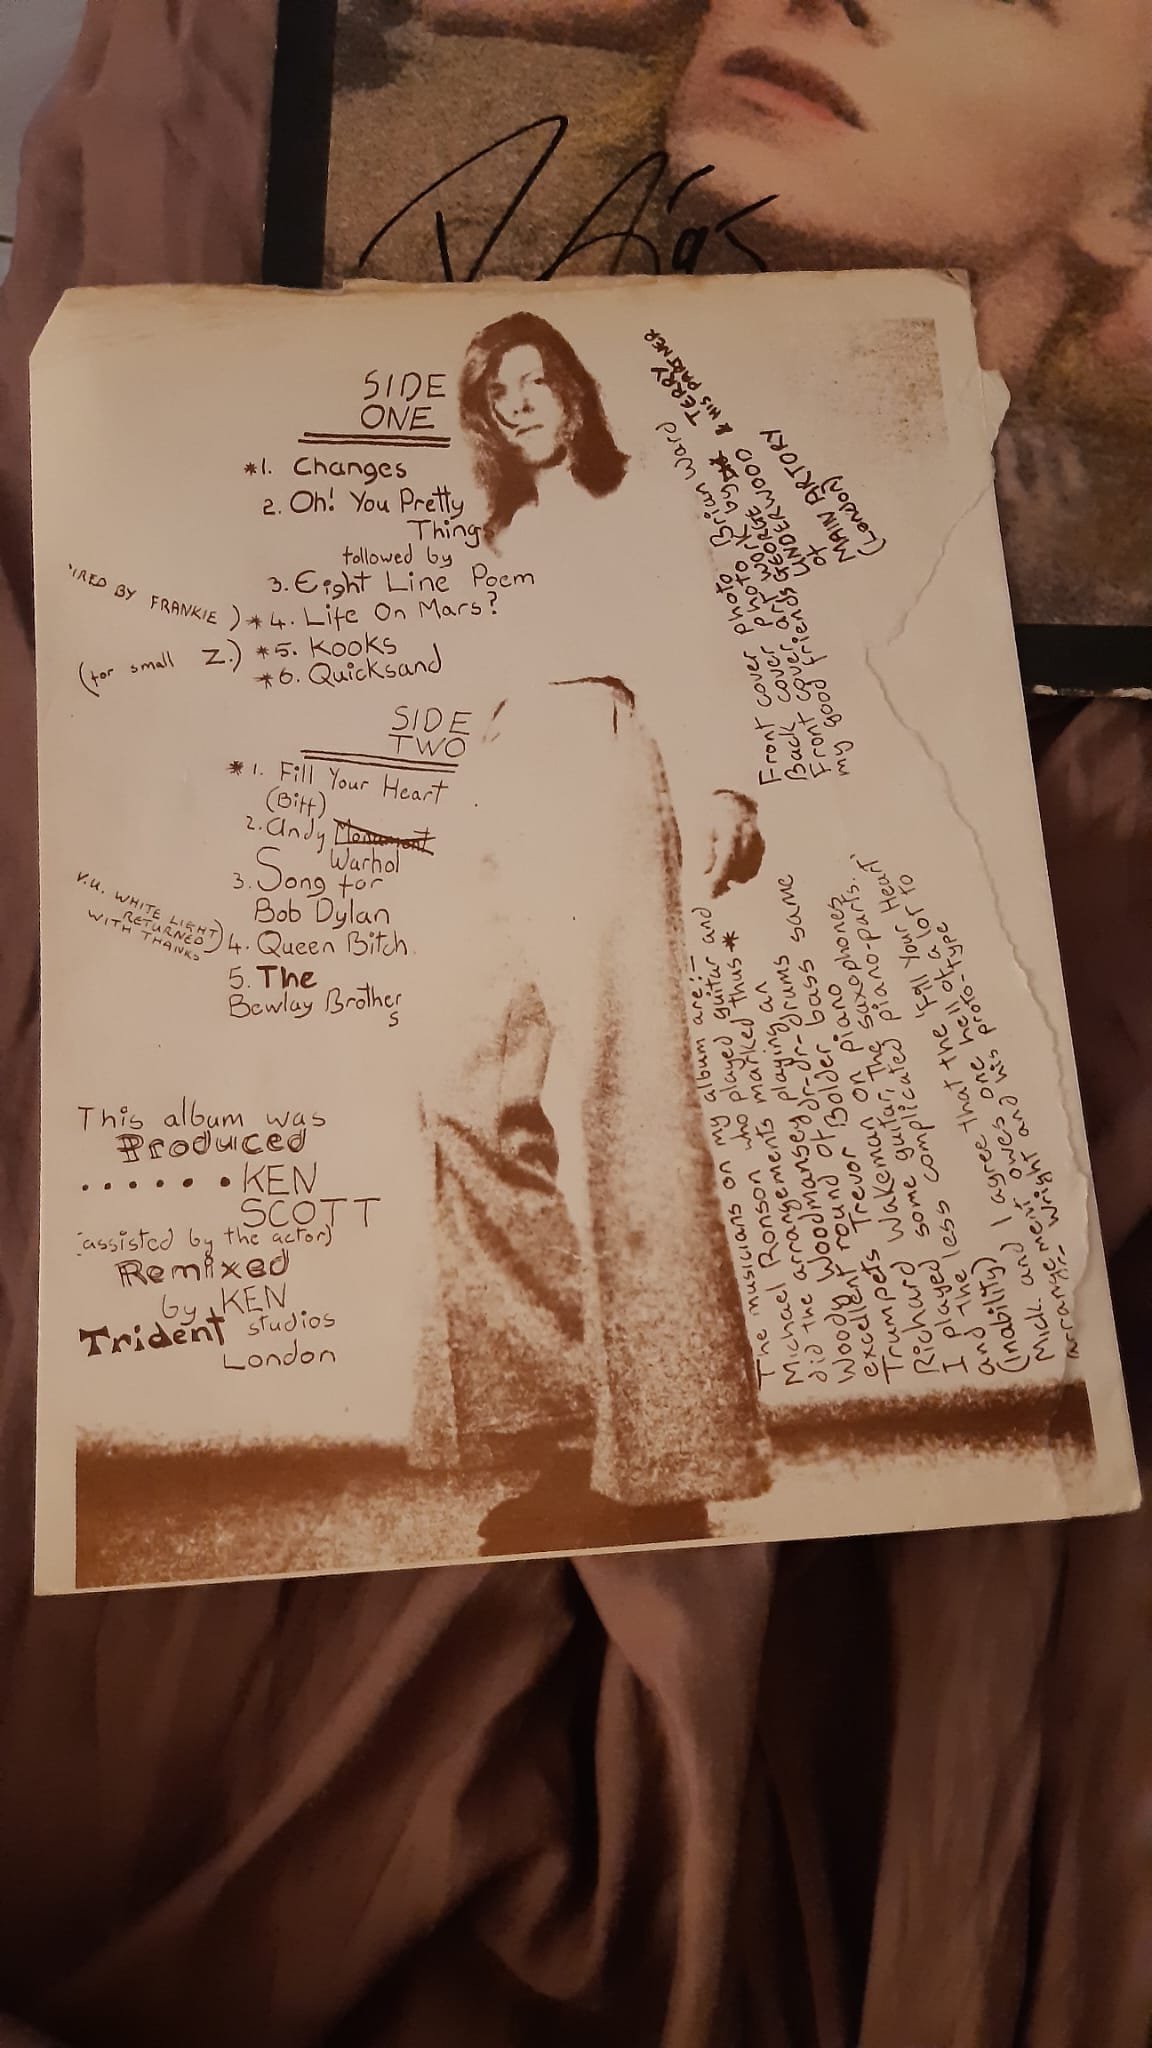 SIDE
ONE
*1. Changes
2. Oh! You Pretty
Things
followed by
3. Eight Line Poem
'IRED BY FRANKIE) *4. Life On Mars?
(for small Z.) *5. Kooks
*6. Quicksand
SIDE
TWO
*1. Fill Your Heart
(Biff)
2. Andy Monument
Warhol
3. Song for
Bob Dylan
V.U. WHITE LIGHT
RETURNED
WITH THANKS)
4. Queen Bitch
5. The
Bewlay Brother
s
This album was
Produced
......KEN
SCOTT
(assisted by the actor)
Remixed
by KEN
Trident studios
London
Front cover photo Brian Ward
Back cover photo by & HIS PARTNER
Front cover art work TERRY
my good friends GEORGE UNDERWOOD
of
MAIN ARTORY
(London)
The musicians on my album are:-
Michael Ronson who played guitar and
did the arrangements marked thus *
Woody Woodmansey dr-dr-drums playing an
excellent round of Bolder bass same
Trumpets Trevor on piano
Richard Wakeman, the saxophones,
I played some guitar, piano-parts.
and the less complicated
(inability) I agree that the 'Fill Your Heart'
Mick and I agree one hell of a lot to
arrangement owes proto-type
arrange- Wright and his